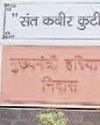 "संत कबीर कुटी
मुख्यमंत्री हरिया
निवास